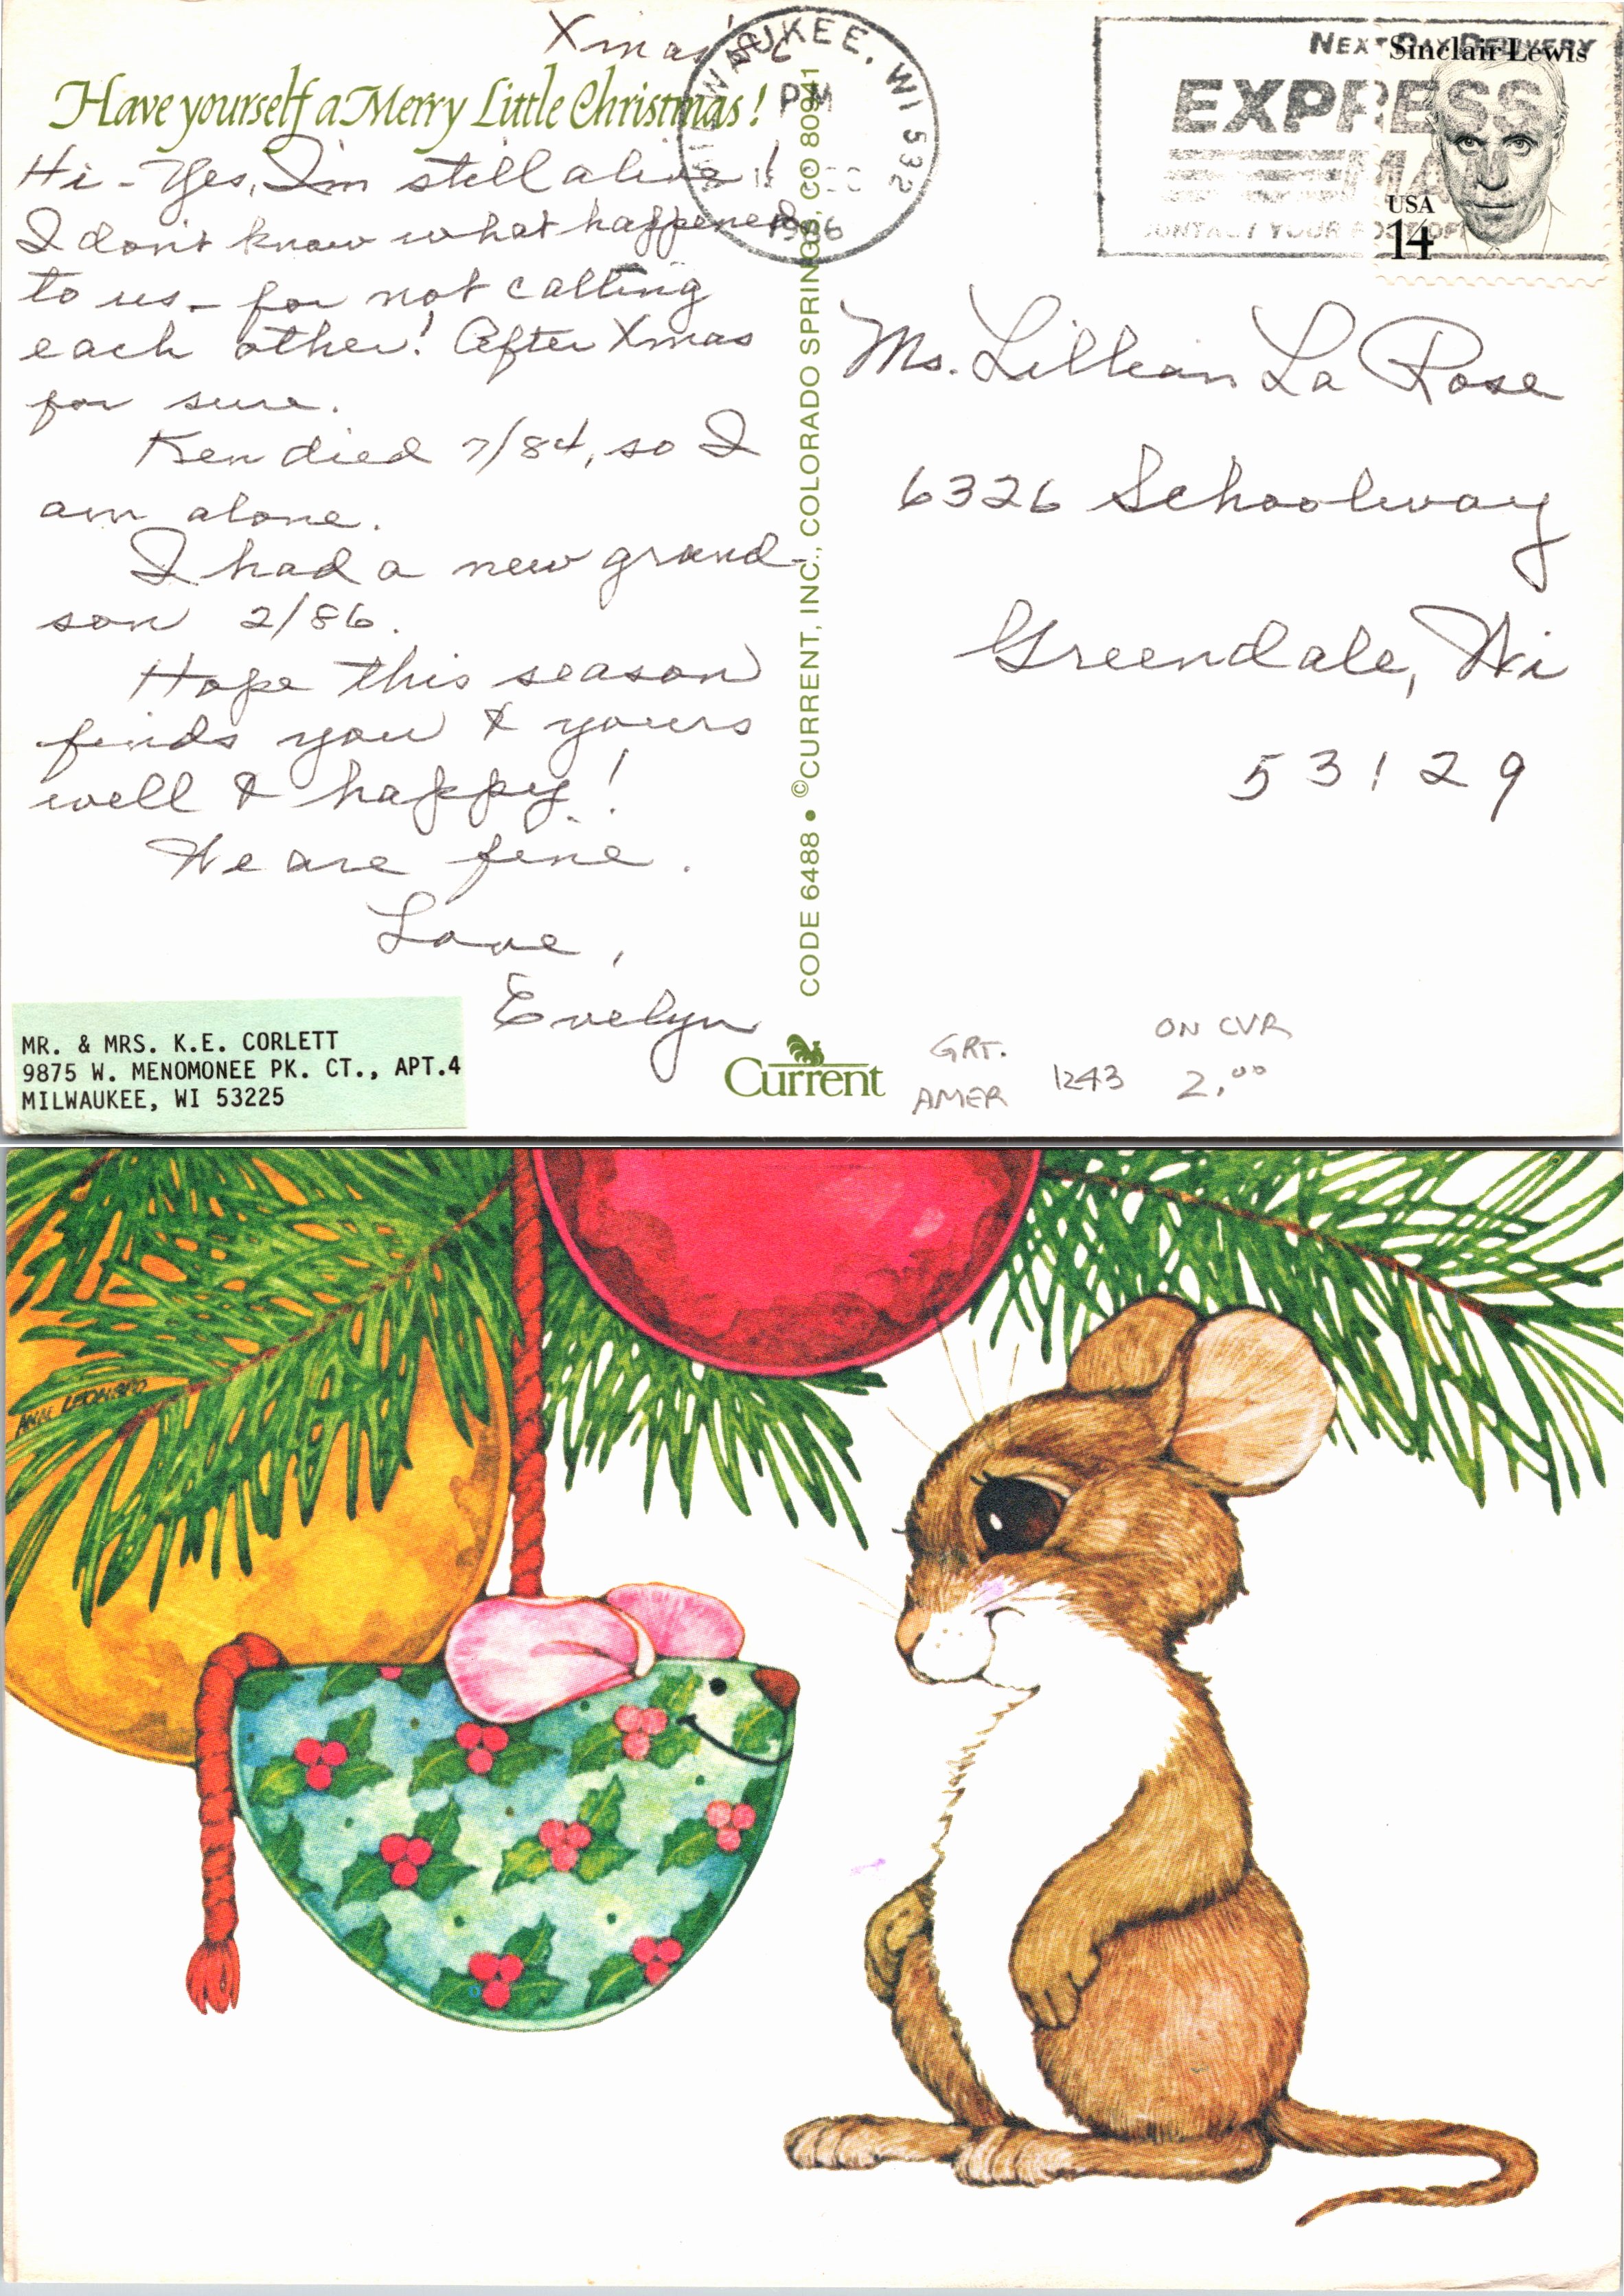 Xmas '86
Have yourself a Merry Little Christmas!
Hi - Yes, I'm still alive!
I don't know what happened
to us - for not calling
each other! After Xmas
for sure.
Ken died 7/84, so I
am alone.
I had a new grand-
son 2/86.
Hope this season
finds you & yours
well & happy!
We are fine.
Love,
Evelyn
MR. & MRS. K.E. CORLETT
9875 W. MENOMONEE PK. CT., APT.4
MILWAUKEE, WI 53225
CODE 6488 • ©CURRENT, INC., COLORADO SPRINGS, CO 80941
Current
MILWAUKEE, WI 532
PM
1986
NEXT DAY DELIVERY
EXPRESS
MAIL
CONTACT YOUR POST OFFICE
Sinclair Lewis
USA
14
Ms. Lillian La Rose
6326 Schoolway
Greendale, Wi
53129
GRT.
AMER
1243
ON CVR
2.00
ANNE LEONARD